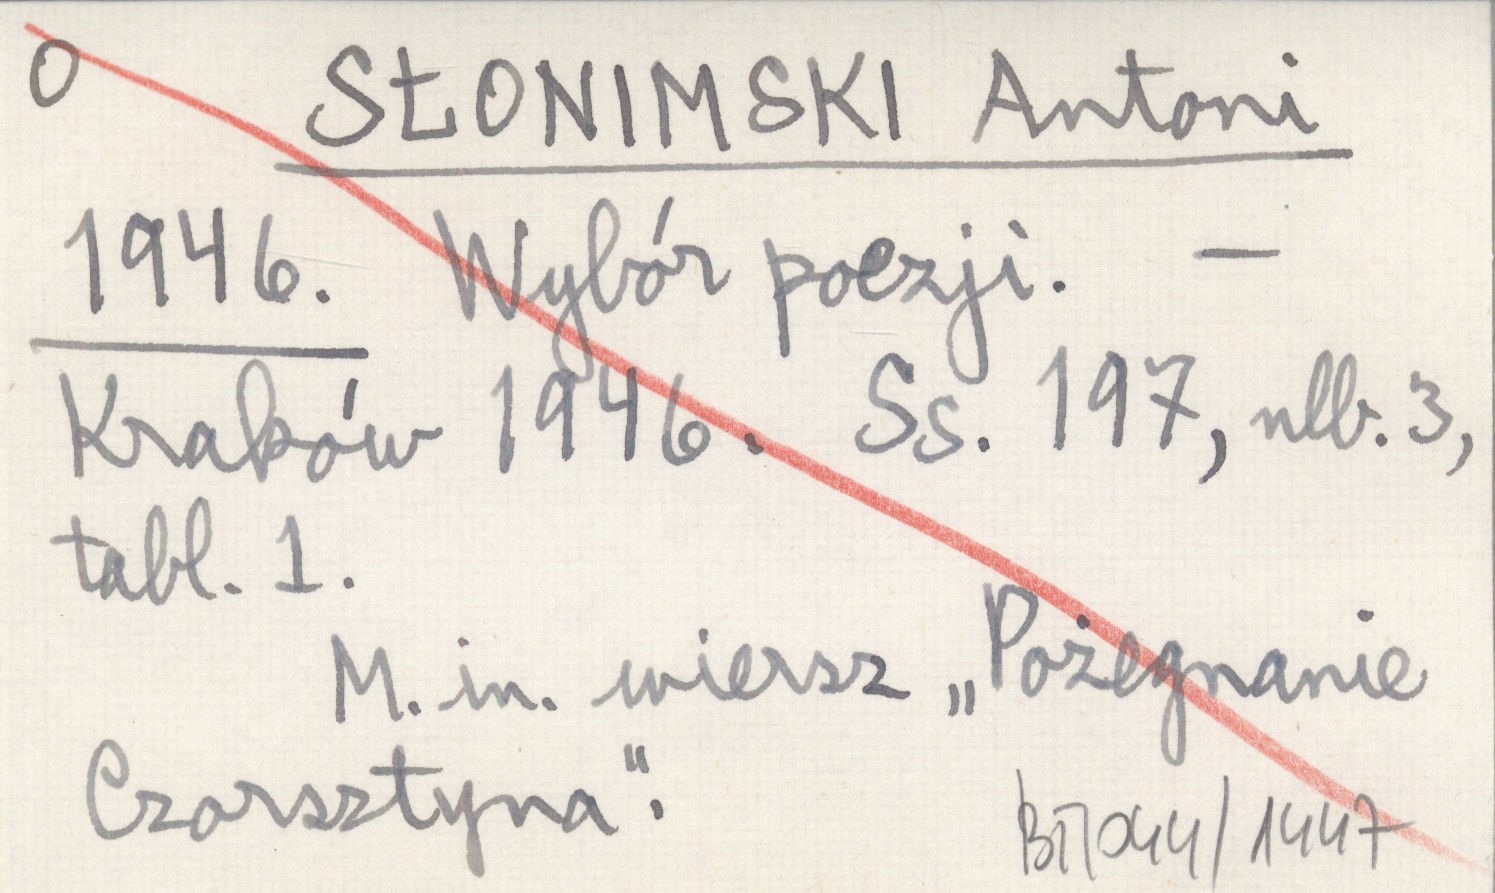 O SŁONIMSKI Antoni
1946. Wybór poezji. —
Kraków 1946. Ss. 197, nlb. 3,
tabl. 1.
M. in. wiersz „Pożegnanie
Czorsztyna".